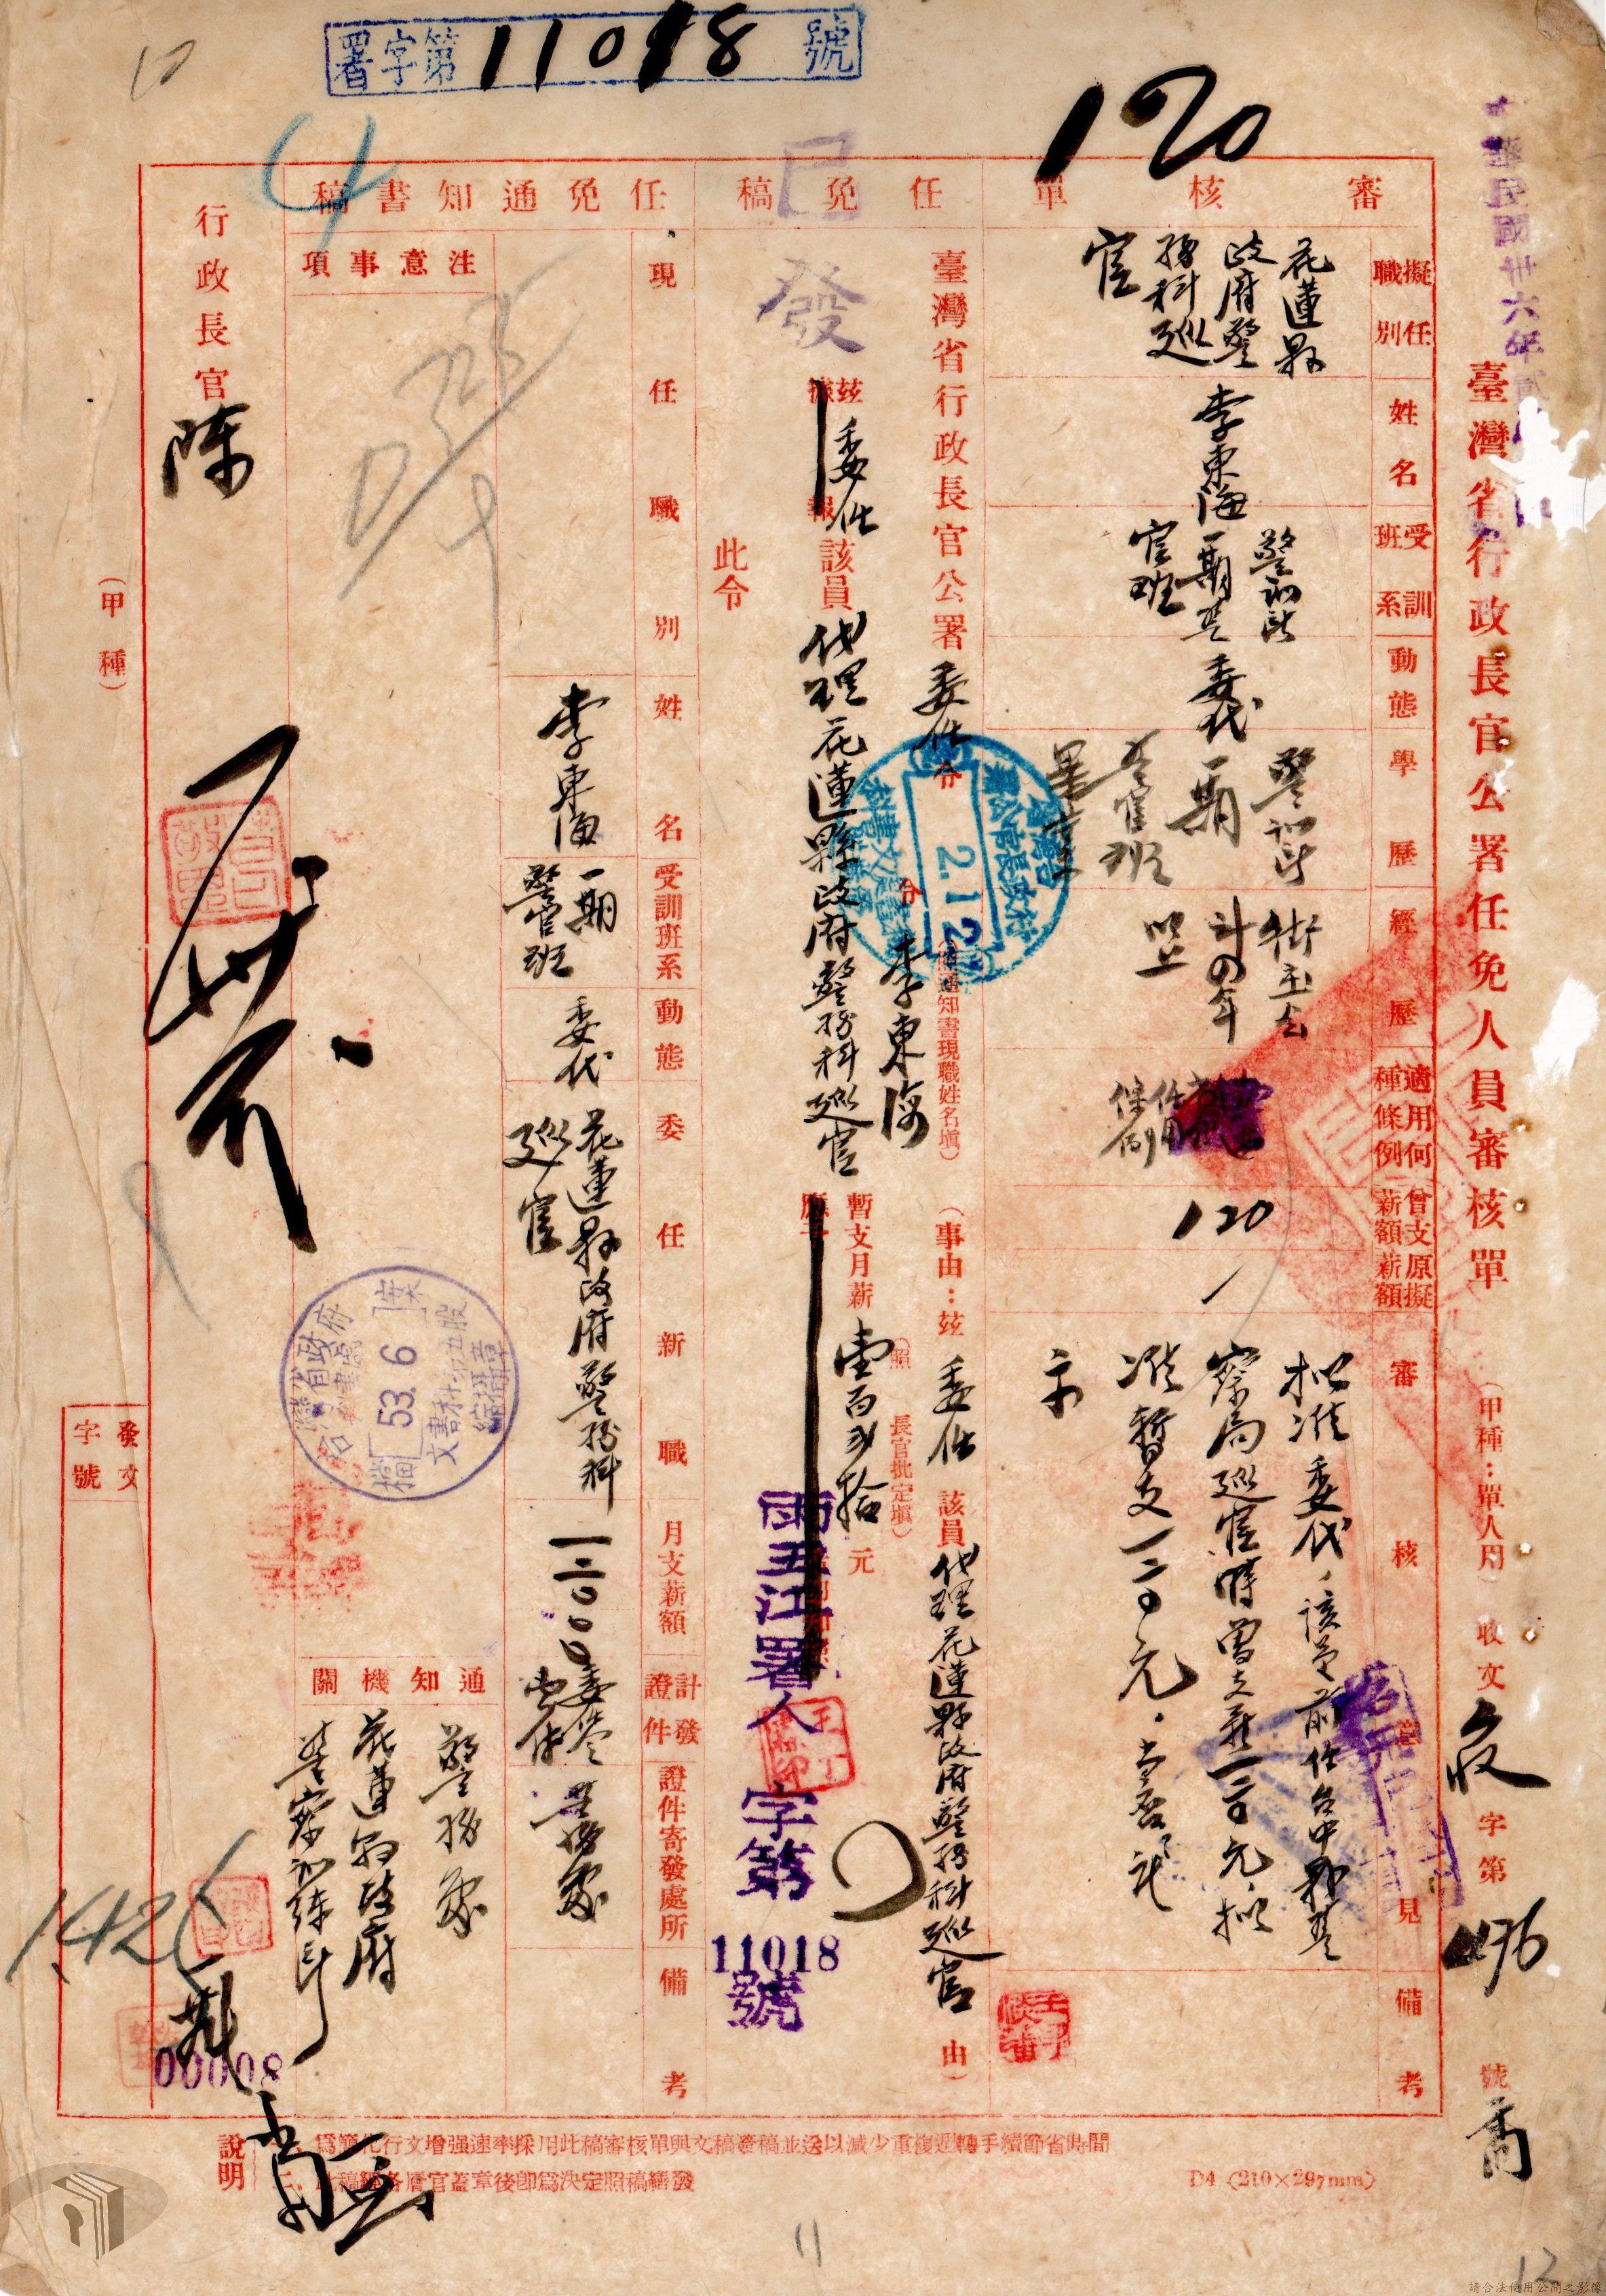 署字第11018號
120
中華民國卅六年貳月
臺灣省行政長官公署任免人員審核單
(甲種：單人用)
收文 收 字第 496 號
審核單
擬任職別
花蓮縣
政府警
務科巡
官
姓名
李東海
受訓班系
警訓所
一期警
官班
動態
委代
學歷
警訓所
一期
警官班
畢業
經歷
計四年
以上
適用何種條例
任用
條例
曾支薪額
120
原擬薪額
審核意見
擬准委代，該員前任台中縣警
察局巡官時曾支薪一二〇元，擬
准暫支一二〇元。當否？乞
示
備考
任免稿
已發
臺灣省行政長官公署 委任令
令 李東海
(查通知書現職姓名填)
(事由：茲 委任 該員代理花蓮縣政府警務科巡官 由)
茲據 委任 報該員代理花蓮縣政府警務科巡官
暫支月薪 壹百貳拾 元
(照長官批定填)
此令
2.12
雨丑江署人字第11018號
任免通知書稿
現任職別
姓名
李東海
受訓班系
一期
警官班
動態
委代
委任新職
花蓮縣政府警務科
巡官
月支薪額
一二〇.〇〇
計發證件
委令
壹件
證件寄發處所
警務處
備考
注意事項
通知機關
警務處
花蓮縣政府
警察訓練所
53.6
行政長官 陳
(甲種)
發文字號
142
00008
說明
一、為簡化行文增强速率採用此稿審核單與文稿簽稿並送以減少重複遞轉手續節省時間
二、此稿經各層官蓋章後即為決定照稿繕發
D4 (210×297mm)
11
12
請合法使用公開之影像